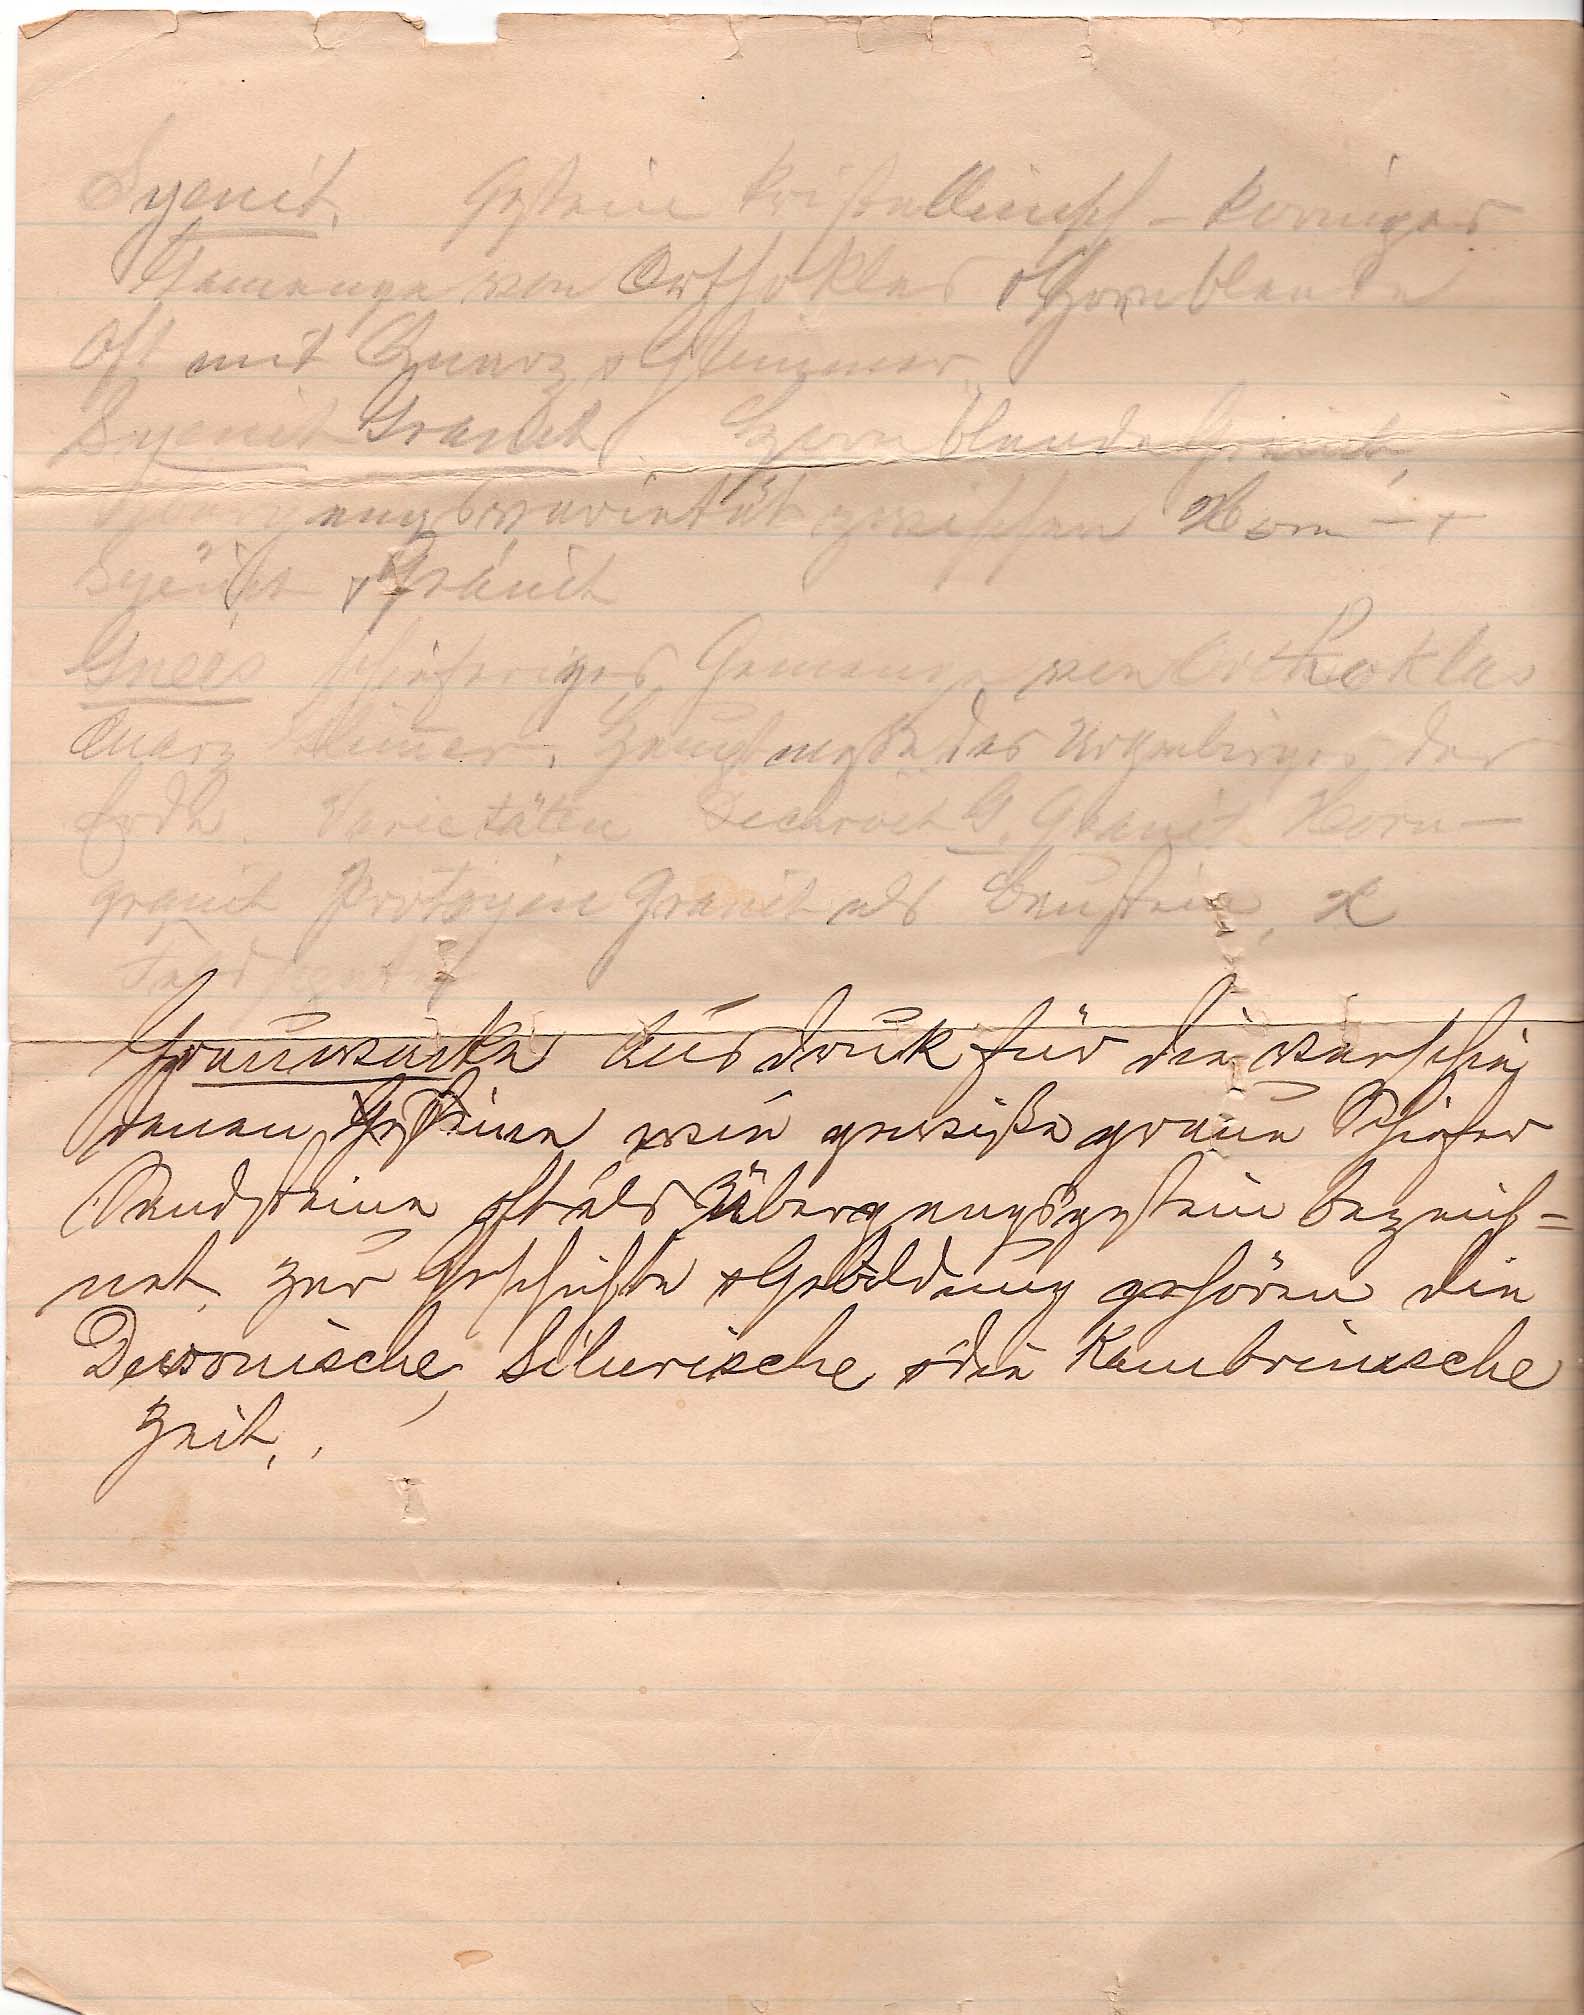 Syenit. Gestein kristallinisch - körniges
Gemenge von Orthoklas & Hornblende
oft mit Quarz & Glimmer
Syenit Granit. Hornblende Granit,
Übergangsvarietät zwischen Horn - +
Syenit & Granit
Gneis schiefriges Gemenge von Orthoklas
Quarz Glimer. Hauptmaße des Urgebirges der
Erde. Varietäten G. Granit Horn-
granit Protogin Granit als Baustein, &
Grauwacke Ausdruk für die verschie
denen Gesteine wie gewiße graue Schiefer
Sandsteine oft als Übergangsgestein bezeich=
net. zur Geschichte & Gebildung gehören die
Devonische, Silurische & die Kambrinische
Zeit.